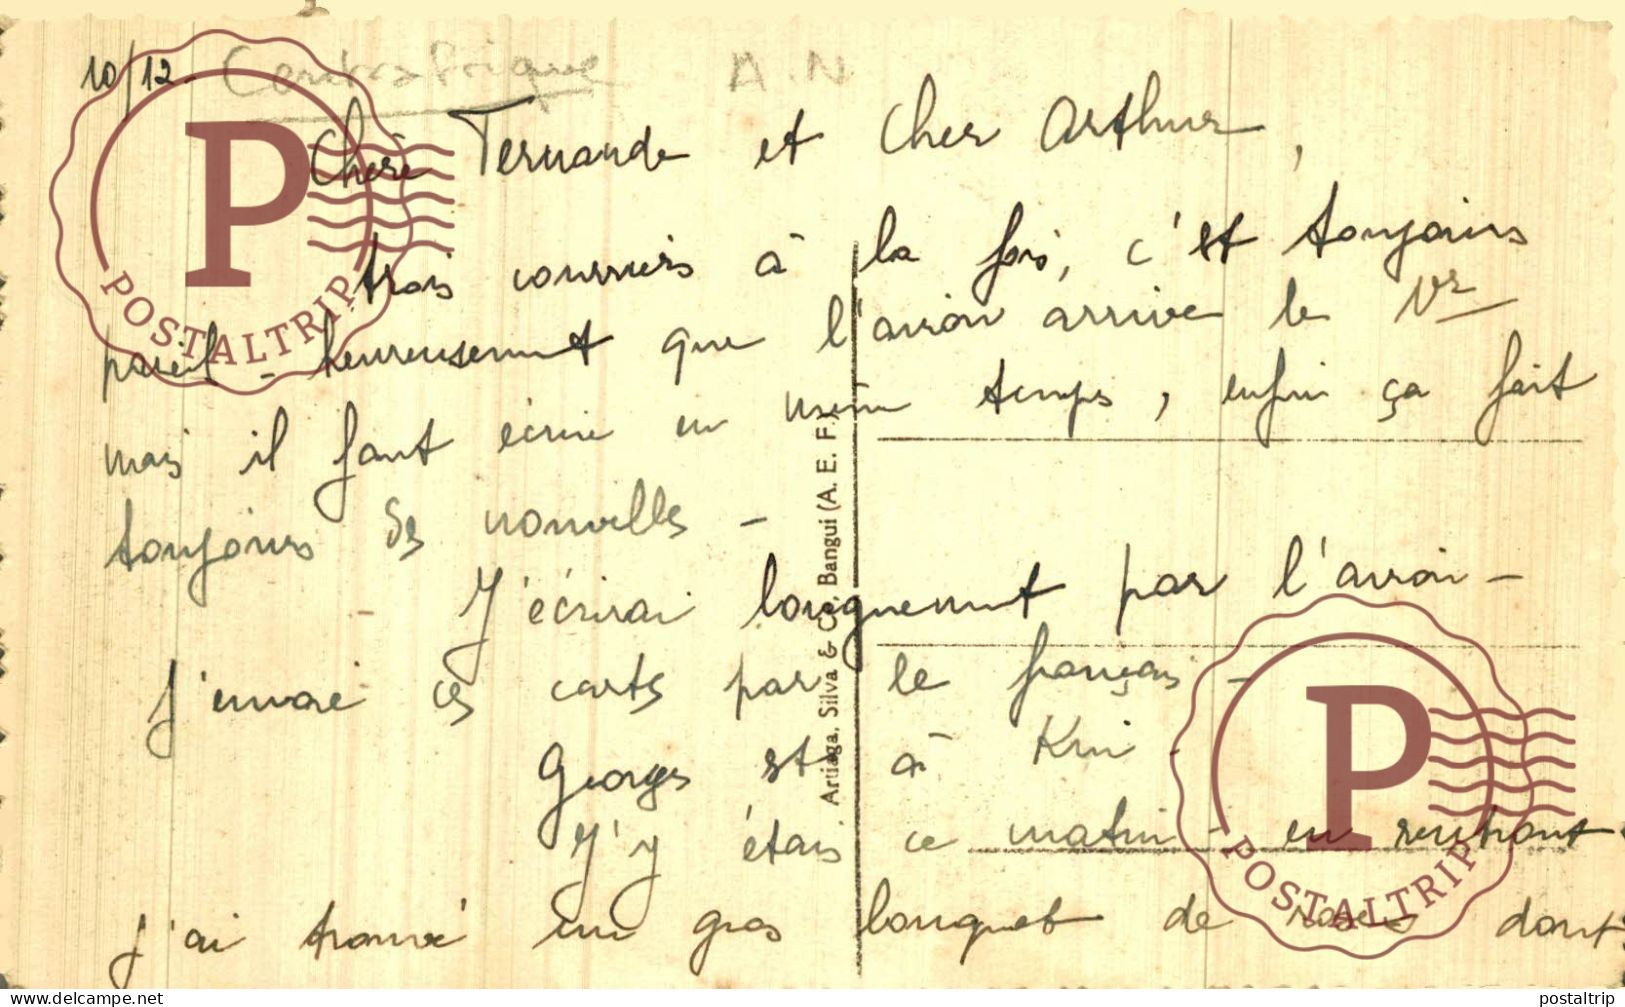 10/12 - Centrafrique A.N
Chère Fernande et Cher Arthur,
trois courriers à la fois, c'est toujours
pareil - heureusement que l'avion arrive le 1er
mais il faut écrire en même temps, enfin ça fait
toujours des nouvelles -
- J'écrirai longuement par l'avion -
J'envoie ces cartes par le français -
Georges est à Kin -
J'y étais ce matin - en rentrant
j'ai trouvé un gros bouquet de roses dont
Artiaga, Silva & Co, Bangui (A. E. F.)
POSTALTRIP
POSTALTRIP
www.delcampe.net
postaltrip